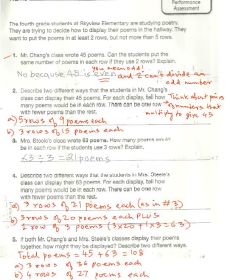 Performance
Assessment
The fourth grade students at Skyview Elementary are studying poetry.
They are trying to decide how to display their poems in the hallway. They
want to put the poems in at least 2 rows, but not more than 5 rows.
1. Mr. Chang's class wrote 45 poems. Can the students put the
same number of poems in each row if they use 2 rows? Explain.
No because 45 is even and 2 can't divide an
odd number
2. Describe two different ways that the students in Mr. Chang's
class can display their 45 poems. For each display, tell how
many poems would be in each row. There can be no one row
with fewer poems than the rest.
Think about pairs
of numbers that
multiply to give 45
a) 5 rows of 9 poems each
b) 3 rows of 15 poems each
Mrs. Steele's class wrote 63 poems. How many poems would
be in each row if the students use 3 rows? Explain.
63 ÷ 3 = 21 poems
Describe two different ways that the students in Mrs. Steele's
class can display their 63 poems. For each display, tell how
many poems would be in each row. There can be one row
with fewer poems than the rest.
a) 3 rows of 21 poems each (as in #3)
b) 3 rows of 20 poems each PLUS
1 row of 3 poems (3x20 + 1x3 = 63)
5. If both Mr. Chang's and Mrs. Steele's classes display their poems
together, how might they be displayed? Describe two different ways.
Total poems = 45 + 63 = 108
a) 3 rows of 36 poems each
b) 4 rows of 27 poems each